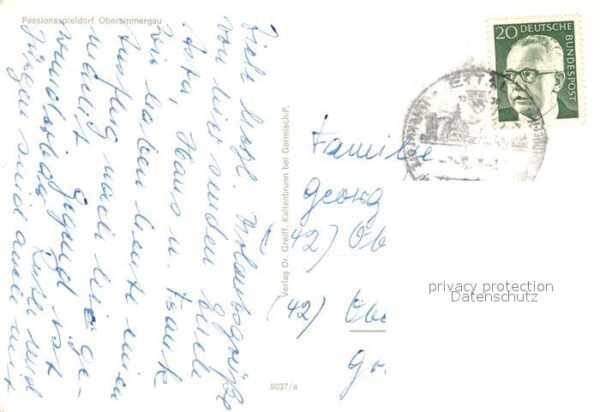 Passionsspieldorf Oberammergau
Viele herzl. Urlaubsgrüße
von hier senden Euch
Asta, Hans u. Frank
Wir haben heute einen
Ausflug nach hier ge-
macht. Gegend ist
wunderschön. Ruth und
Jürgen sind auch mit
Verlag Dr. Greiff, Kaltenbrunn bei Garmisch-P.
5037/a
20 DEUTSCHE BUNDESPOST
ETTAL
Familie
Georg
(42) Ob
(42) Obe
privacy protection
Datenschutz